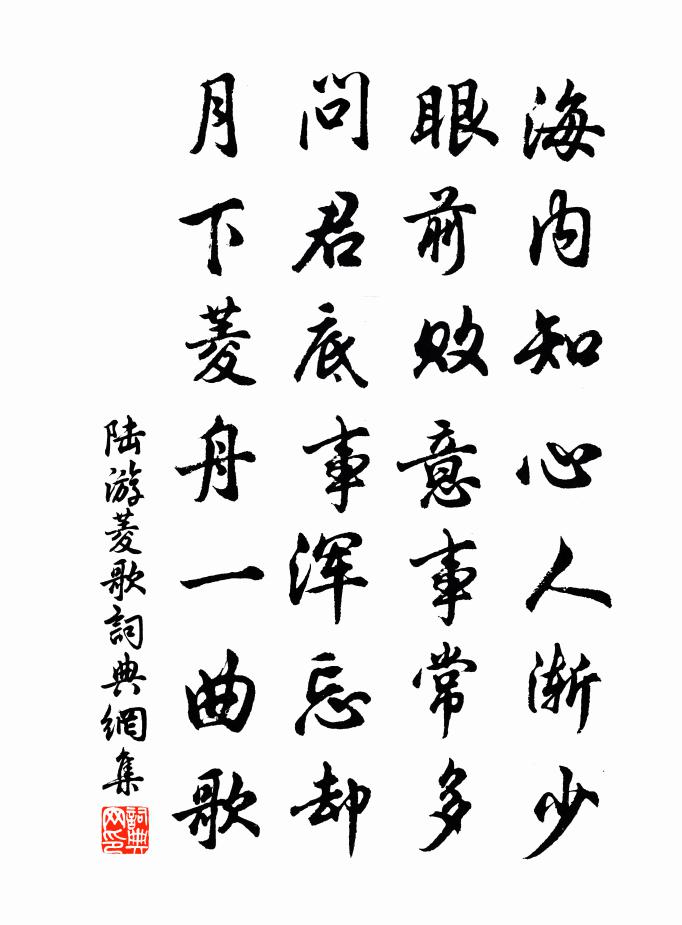 海内知心人渐少
眼前败意事常多
问君底事浑忘却
月下菱舟一曲歌
陆游菱歌詞典網集
詞典网印